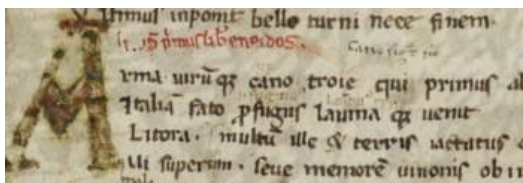 Ultimus inponit bello turni nece finem.
primus lib eneidos.
Arma uirū qꝫ cano troie qui primus ab
Italiā fato ꝓfugus lauina qꝫ uenit
Litora. multū ille & terris iactatus
ui superum. seue memorē iunonis ob